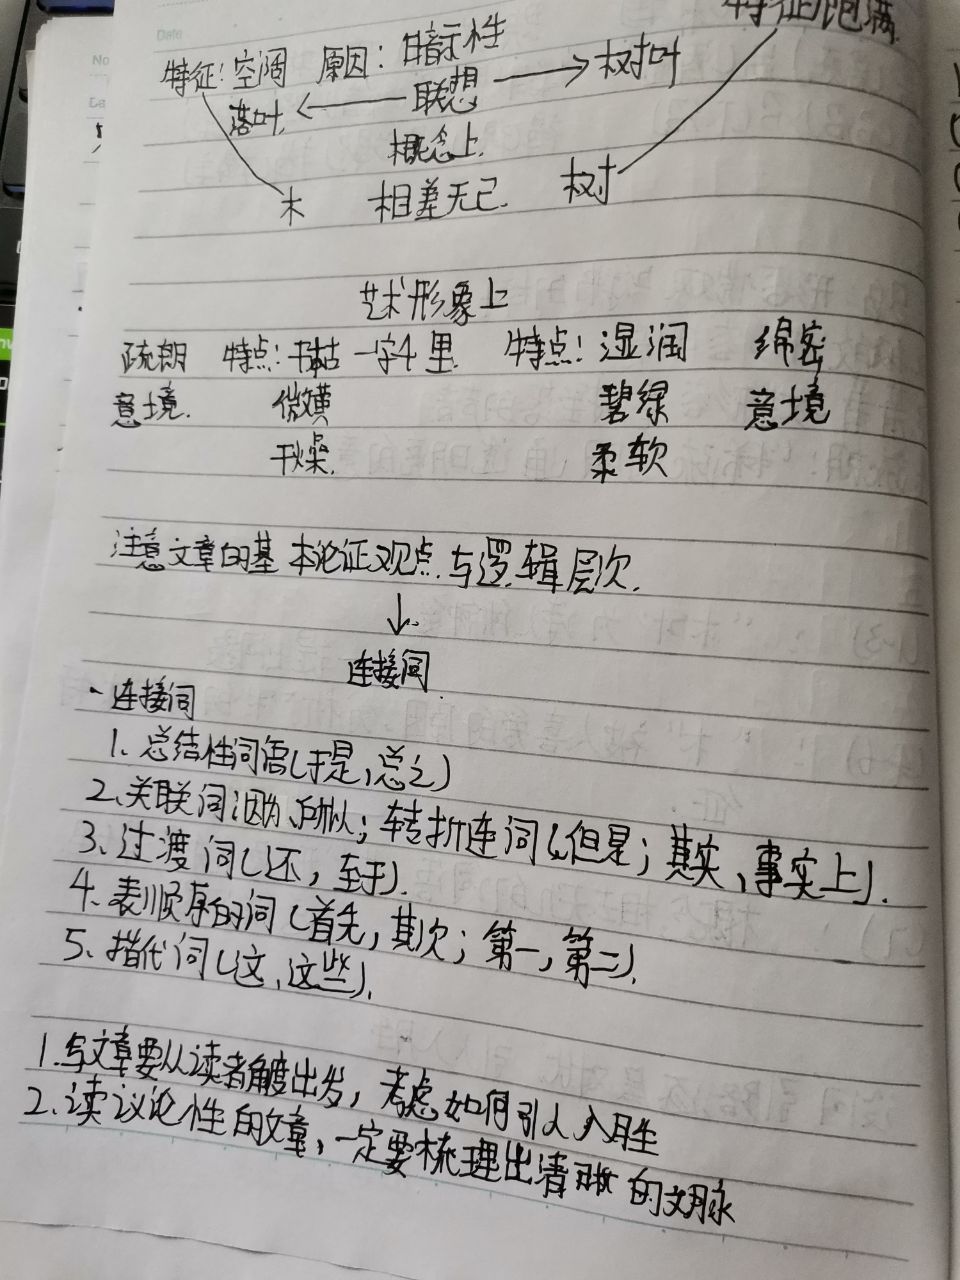 特征饱满
特征:空阔 原因:暗示性
落叶 ← 联想 → 树叶
概念上.
木 相差无己. 树
艺术形象上
疏朗 特点:干枯 一字千里. 特点:湿润 绵密
意境. 微黄 碧绿 意境
干燥. 柔软
注意文章的基本论证观点.与逻辑层次.
↓
连接词
·连接词
1. 总结性词语(于是,总之)
2、关联词:因为、所以;转折连词(但是;其实、事实上).
3、过渡词(还,至于).
4、表顺序的词(首先,其次;第一,第二).
5、指代词(这,这些).
1.写文章要从读者角度出发,考虑如何引人入胜
2.读议论性的文章,一定要梳理出清晰的文脉